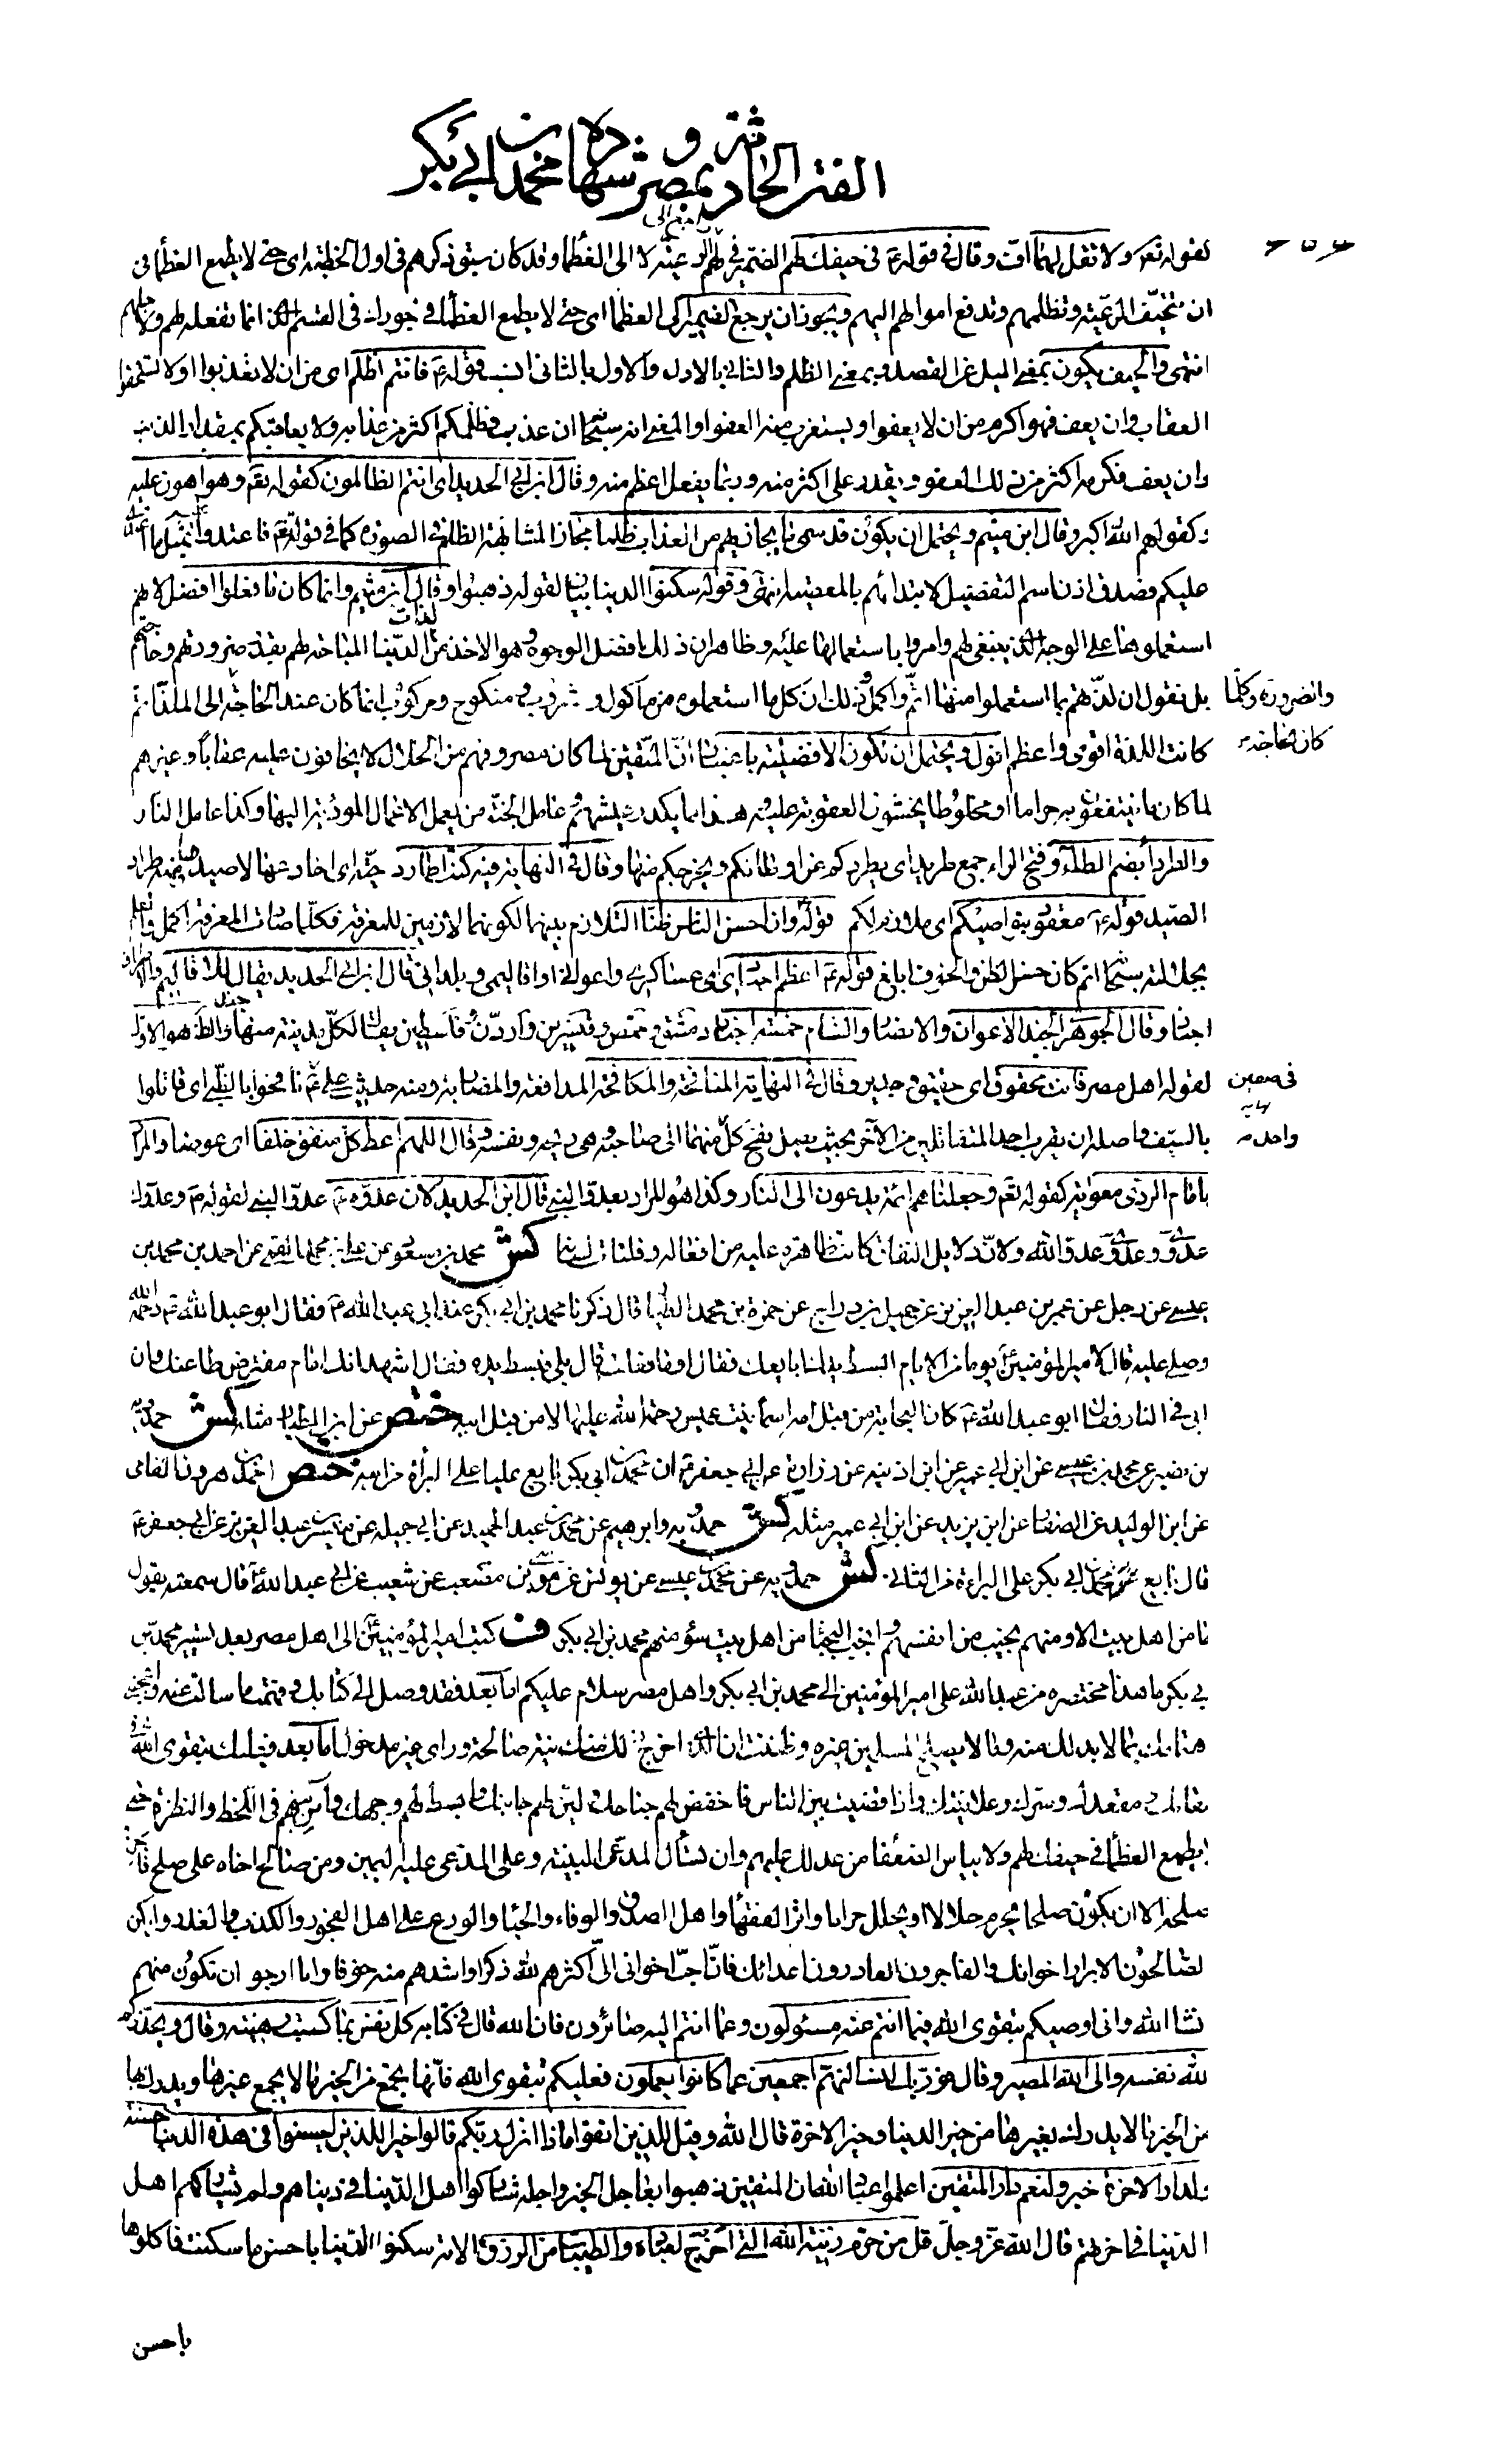 الفتن الحادثة بمصر و شهادة محمد بن أبي بكر
٦٥٤
لقوله تعالى ولا تقل لهما اف وقال في قوله ع في حيفك لهم الضمير في لهم راجع الى الرعية لا الى العظما وقد كان سبق ذكرهم في اول الخطبة اى حتى لا يطمع العظما فى
ان تحيف الرعية وتظلمهم وتدفع اموالهم اليهم ويجوز ان يرجع الضمير الى العظما اى حتى لا يطمع العظما في جورك في القسم الذى انما تفعله لهم ولاجلهم
انتهى والحيف يكون بمعنى الميل عن القصد وبمعنى الظلم والثانى بالاول والاول بالثانى انسب قوله ع فانتم اظلم اى من ان لا تعذبوا اولا تستحقوا
العقاب وان يعف فهو اكرم من ان لا يعفو او يستغرب منه العفو او المعنى انه سبحانه ان عذب فظلمكم اكثر من عذابه ولا يعاقبكم بمقدار الذنب
وان يعف فكرمه اكثر من ذلك العفو ويقدر على اكثر منه وربما يفعل اعظم منه وقال ابن ابي الحديد اى انتم الظالمون كقوله تعالى وهو اهون عليه
وكقولهم الله اكبر وقال ابن ميثم ويحتمل ان يكون قد سمى ما يجازيهم من العذاب ظلما مجازا لمشابهة الظلم في الصورة كما في قوله تعالى فاعتدوا عليه بمثل ما اعتدى
عليكم فصدق اذن اسم التفضيل لابتدائهم بالمعصية انتهى وقوله سكنوا الدنيا بيان لقوله ذهبوا وقال ابن ميثم وانما كان ما فعلوا افضل لانهم
استعملوها على الوجه الذى ينبغى لهم وامروا باستعمالها عليه وظاهر ان ذلك افضل الوجوه وهو الاخذ من لذات الدنيا المباحة لهم بقدر ضرورتهم وحاجتهم
بل نقول ان لذتهم بما استعملوا منها اتم واكمل ذلك ان كل ما استعملوه من ماكول و مشروب و منكوح و مركوب انما كان عند الحاجة الى الملذ اتم
والضرورة وكلما
كان الحاجة
كانت اللذة اقوى واعظم اقول ويحتمل ان تكون الافضلية باعتبار ان المتقين لما كان مصروفهم من الحلال لا يخافون عليه عقابا وغيرهم
لما كان ما ينتفعون به حراما او مخلوطا يخشون العقوبة عليه و هذا مما يكدر عيشهم و عامل الجنة من يعمل الاعمال المؤدية اليها وكذا عامل النار
والطرداء بضم الطاء وفتح الراء جمع طريد اى يطردكم عن اوطانكم ويخرجكم منها وقال فى النهاية فيه كنت اطارد حية اى اخادعها لاصيدها ومنه طراد
الصيد قوله ع معقود بنواصيكم اى ملازم لكم قوله وان احسن الناس ظنا التلازم بينهما لكونهما لازمين للمعرفة فكلما صارت المعرفة اكمل والعلم
بجلالته سبحانه اتم كان حسن الظن والخوف ابلغ قوله ع اعظم اجنادى اى عساكرى واعوانى واقاليمى وبلدانى قال ابن ابى الحديد يقال للاقاليم والاطراف
اجناد وقال الجوهرى الجند الاعوان والانصار والشام خمسة اجناد دمشق وحمص وقنسرين واردن وفلسطين يقال لكل مدينة منها جند والظاهر هو الاول
لقوله اهل مصر فانت محقوق اى حقيق وجدير وقال فى النهاية المنافحة والمكافحة المدافعة والمضاربة ومنه حديث على ع نافحوا بالظبى اى قاتلوا
فى صفين
بالسيوف واصله ان يقرب احد المتقاتلين من الآخر بحيث يصل نفح كل منهما الى صاحبه وهى ريحه ونفسه وقال اللهم اعط كل منفق خلفا اى عوضا والمراد
واحد
بامام الردى معوية كقوله تعالى وجعلناهم ائمة يدعون الى النار وكذا هو المراد بعدو النبى قال ابن الحديد لان عدوه ع عدو النبى لقوله ص وعدوك
عدوى وعدوى عدو الله ولان دلايل النفاق كانت ظاهرة عليه من افعاله وفلتات لسانه كش محمد بن مسعود عن على بن محمد القمى عن احمد بن محمد بن
عيسى عن رجل عن عمر بن عبد العزيز عن جميل بن دراج عن حمزة بن محمد الطيار قال ذكرنا محمد بن ابى بكر عند ابى عبد الله ع فقال ابو عبد الله ع رحمه الله
وصلى عليه قال لامير المؤمنين ع يوما من الايام ابسط يدك ابايعك فقال اوما فعلت قال بلى فبسط يده فقال اشهد انك امام مفترض طاعتك وان
ابى فى النار فقال ابو عبد الله ع كان النجابة من قبل امه اسماء بنت عميس رحمة الله عليها لا من قبل ابيه ختص عن ابن الطيار مثله كش حمدويه
بن نصير عن محمد بن عيسى عن ابن ابى عمير عن ابن اذينة عن زرارة عن ابى جعفر ع ان محمد بن ابى بكر بايع عليا على البراءة من ابيه ختص احمد بن هرون الفامى
عن ابن الوليد عن الصفار عن ابن يزيد عن ابن ابى عمير مثله كش حمدويه وابرهيم عن محمد بن عبد الحميد عن ابى جميلة عن ميسر بن عبد العزيز عن ابى جعفر ع
قال بايع محمد بن ابى بكر على البراءة من الثانى كش حمدويه عن محمد بن عيسى عن يونس عن موسى بن مصعب عن شعيب عن ابى عبد الله ع قال سمعته يقول
ما من اهل بيت الا ومنهم نجيب من انفسهم و انجب النجباء من اهل بيت سوء منهم محمد بن ابى بكر ف كتب امير المؤمنين ع الى اهل مصر بعد تسيير محمد بن
بى بكر ما هذا مختصره من عبد الله على امير المؤمنين الى محمد بن ابى بكر واهل مصر سلام عليكم اما بعد فقد وصل الى كتابك وفهمت ما سالت عنه واعجبنى
هتمامك بما لا بد لك منه وما لا يصلح المسلمين غيره وظننت ان الذى اخرج ذلك منك نية صالحة وراى غير مدخول اما بعد فعليك بتقوى الله فى
مقامك و مقعدك وسرك وعلانيتك واذا قضيت بين الناس فاخفض لهم جناحك ولين لهم جانبك وابسط لهم وجهك وآس بينهم فى اللحظ والنظرة حتى
لا يطمع العظما فى حيفك لهم ولا يياس الضعفا من عدلك عليهم وان تسأل المدعى البينة وعلى المدعى عليه اليمين ومن صالح اخاه على صلح فاجز
صلحه الا ان يكون صلحا يحرم حلالا او يحلل حراما واثر الفقهاء واهل الصدق والوفاء والحياء والورع على اهل الفجور والكذب والغدر وليكن
لصالحون الابرار اخوانك والفاجرون الغادرون اعدائك فان احب اخوانى الى اكثرهم لله ذكرا واشدهم منه خوفا وانا ارجو ان تكون منهم
نشا الله وانى اوصيكم بتقوى الله فيما انتم عنه مسئولون وعما انتم اليه صائرون فان الله قال فى كتابه كل نفس بما كسبت رهينة وقال ويحذركم
لله نفسه والى الله المصير وقال فوربك لنسالنهم اجمعين عما كانوا يعملون فعليكم بتقوى الله فانها تجمع من الخير ما لا يجمع غيرها ويدرك بها
من الخير ما لا يدرك بغيرها من خير الدنيا وخير الاخرة قال الله وقيل للذين اتقوا ماذا انزل ربكم قالوا خيرا للذين احسنوا فى هذه الدنيا حسنة
ولدار الاخرة خير ولنعم دار المتقين اعلموا عباد الله ان المتقين ذهبوا بعاجل الخير واجله شاركوا اهل الدنيا فى دنياهم ولم يشاركهم اهل
الدنيا فى اخرتهم قال الله عز وجل قل من حرم زينة الله التى اخرج لعباده والطيبات من الرزق الاية سكنوا الدنيا باحسن ما سكنت فاكلوها
باحسن